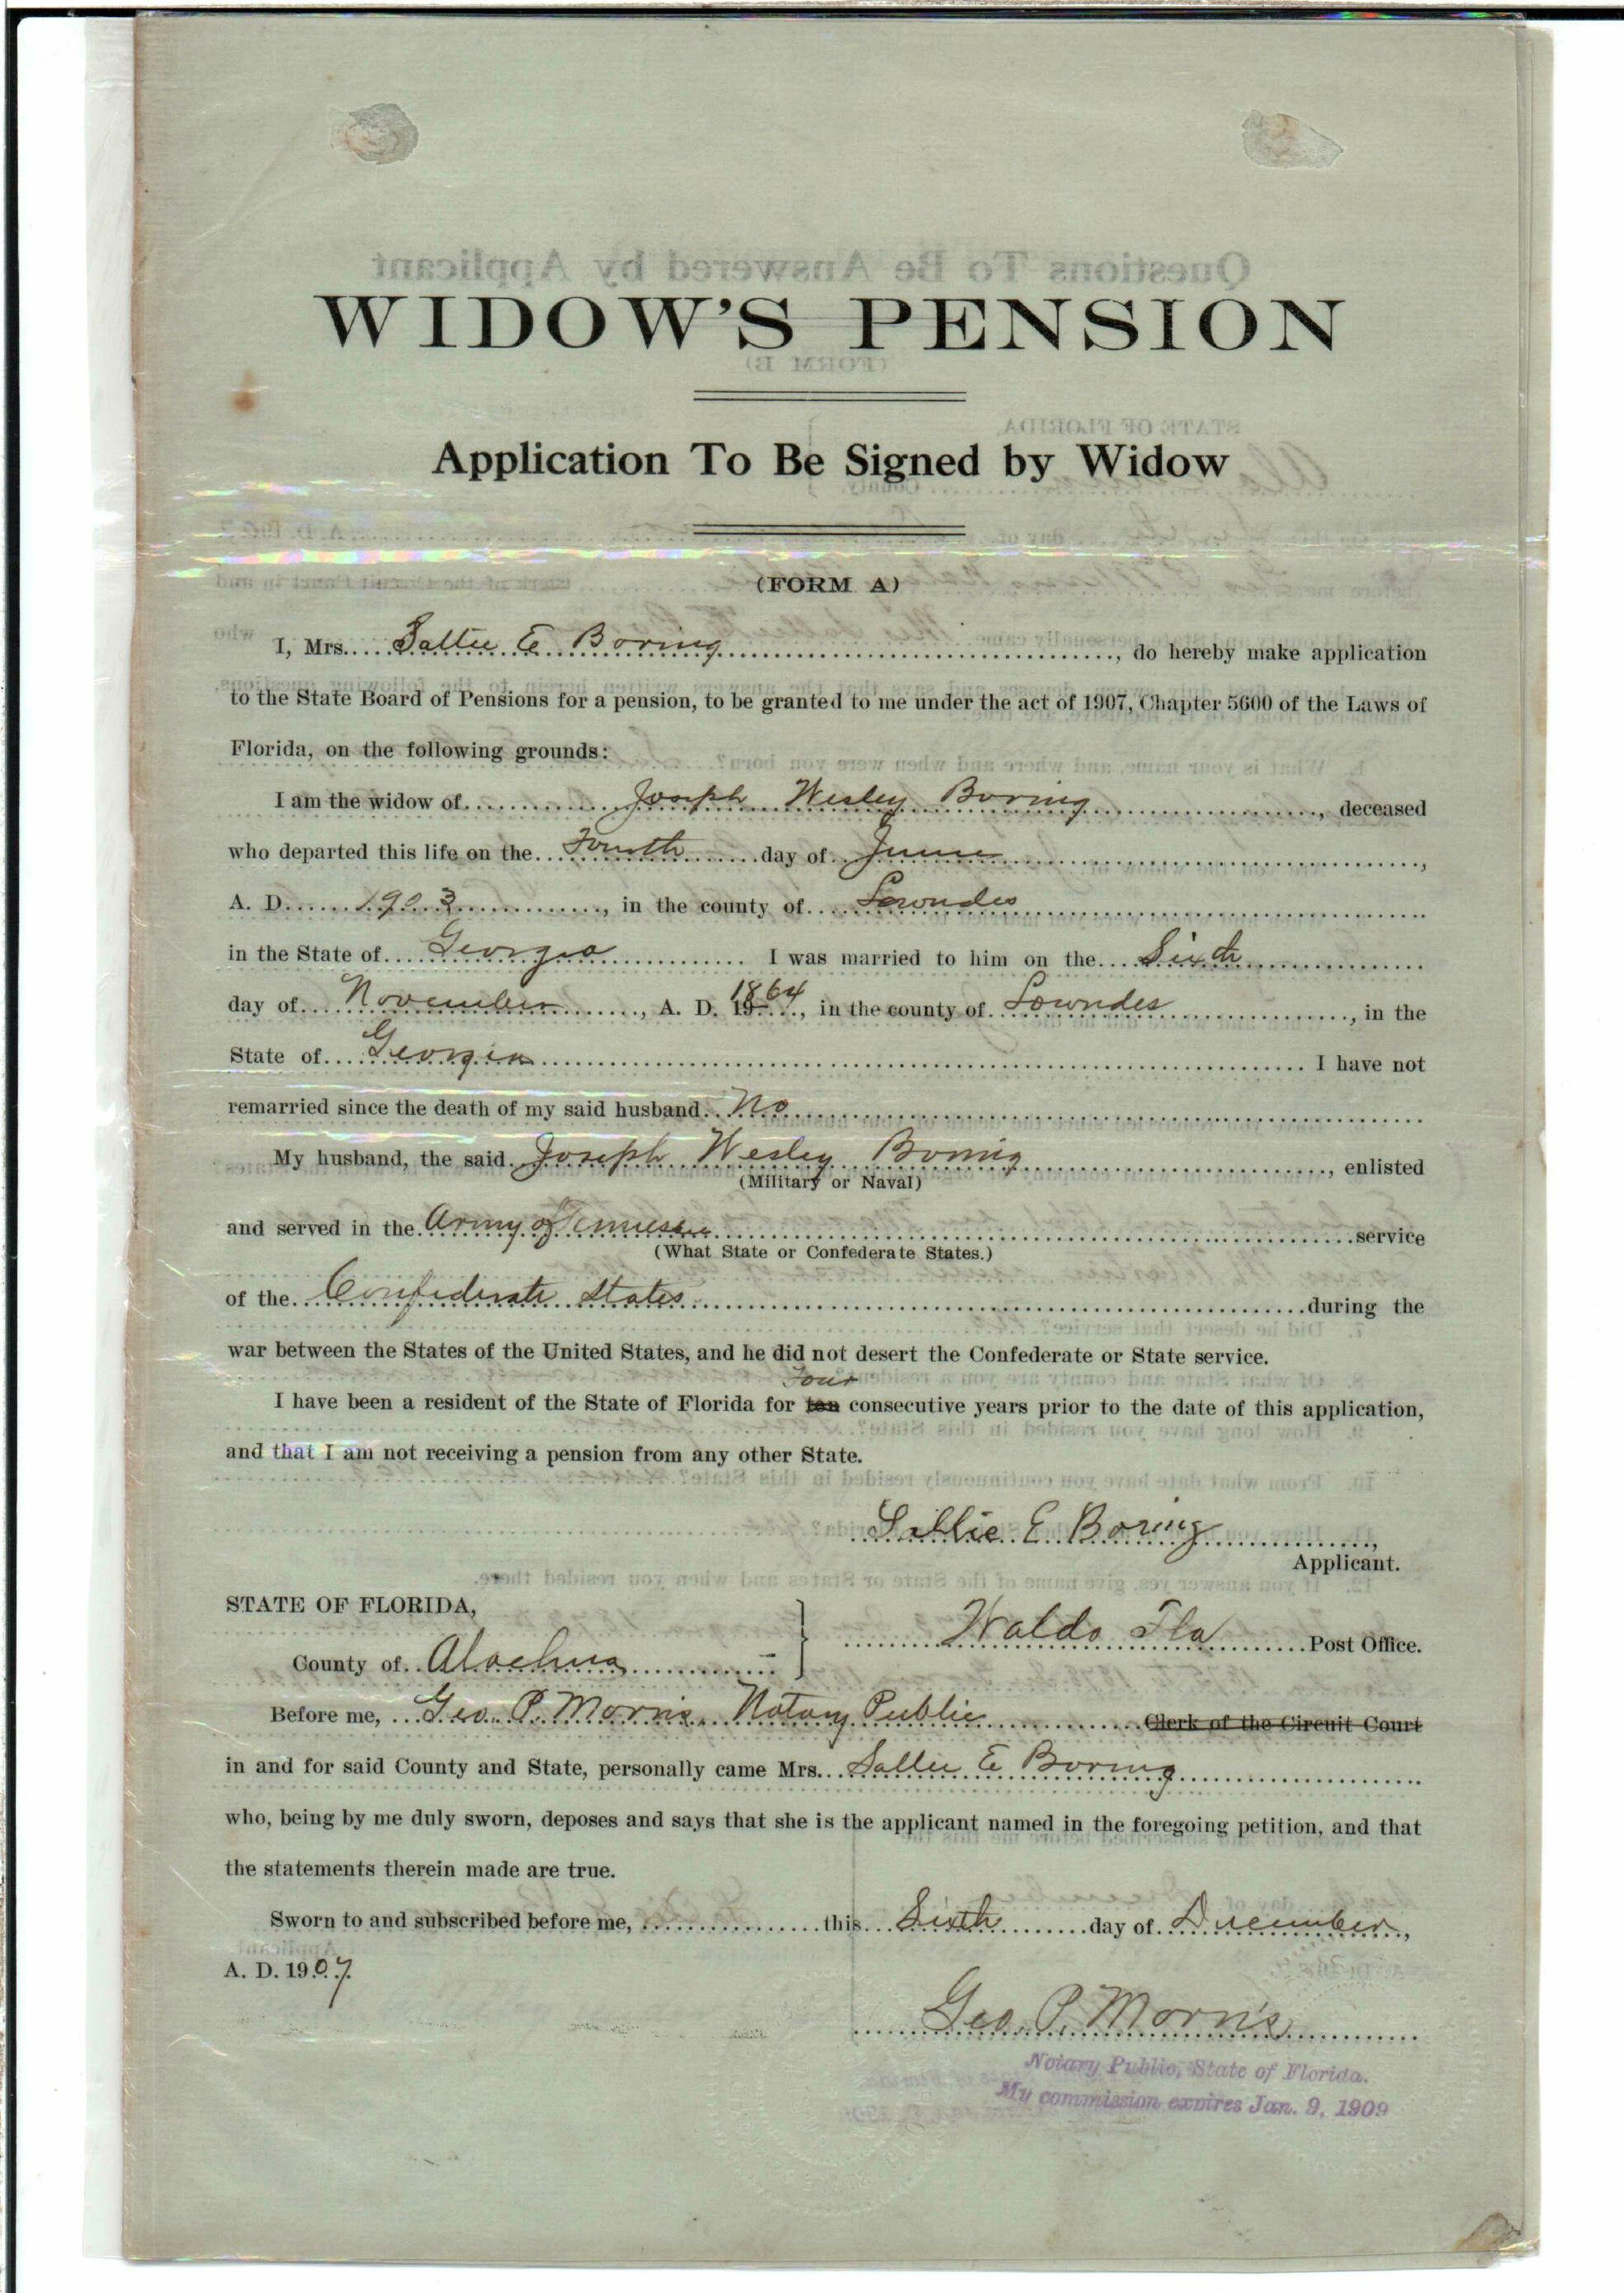 WIDOW'S PENSION
Application To Be Signed by Widow
(FORM A)
I, Mrs. Sallie E Boring, do hereby make application
to the State Board of Pensions for a pension, to be granted to me under the act of 1907, Chapter 5600 of the Laws of
Florida, on the following grounds:
I am the widow of Joseph Wesley Boring, deceased
who departed this life on the Fourth day of June,
A. D. 1903, in the county of Lowndes
in the State of Georgia I was married to him on the Sixth
day of November, A. D. 19 1864, in the county of Lowndes, in the
State of Georgia I have not
remarried since the death of my said husband. No
My husband, the said Joseph Wesley Boring, enlisted
(Military or Naval)
and served in the Army of Tennessee service
(What State or Confederate States.)
of the Confederate States during the
war between the States of the United States, and he did not desert the Confederate or State service.
four
I have been a resident of the State of Florida for ten consecutive years prior to the date of this application,
and that I am not receiving a pension from any other State.
Sallie E Boring,
Applicant.
STATE OF FLORIDA,
Waldo Fla Post Office.
County of Alachua
Before me, Geo. P. Morris, Notary Public Clerk of the Circuit Court
in and for said County and State, personally came Mrs. Sallie E Boring
who, being by me duly sworn, deposes and says that she is the applicant named in the foregoing petition, and that
the statements therein made are true.
Sworn to and subscribed before me, this Sixth day of December,
A. D. 1907.
Geo. P. Morris
Notary Public, State of Florida.
My commission expires Jan. 9, 1909